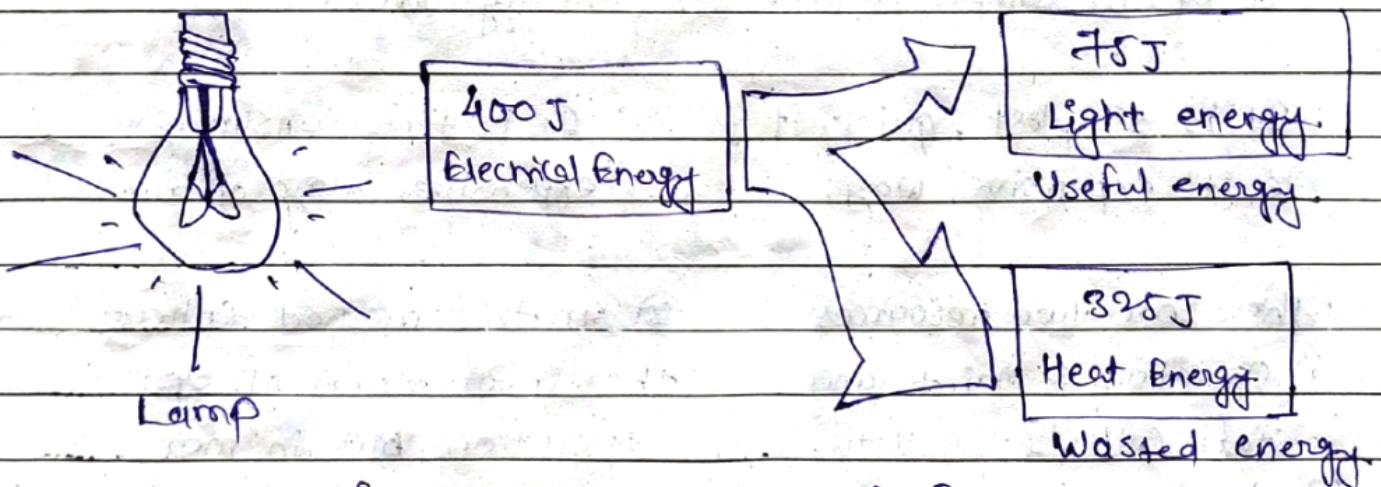 Lamp
400 J
Elecrical Energy
75 J
Light energy.
Useful energy.
325 J
Heat Energy
Wasted energy.